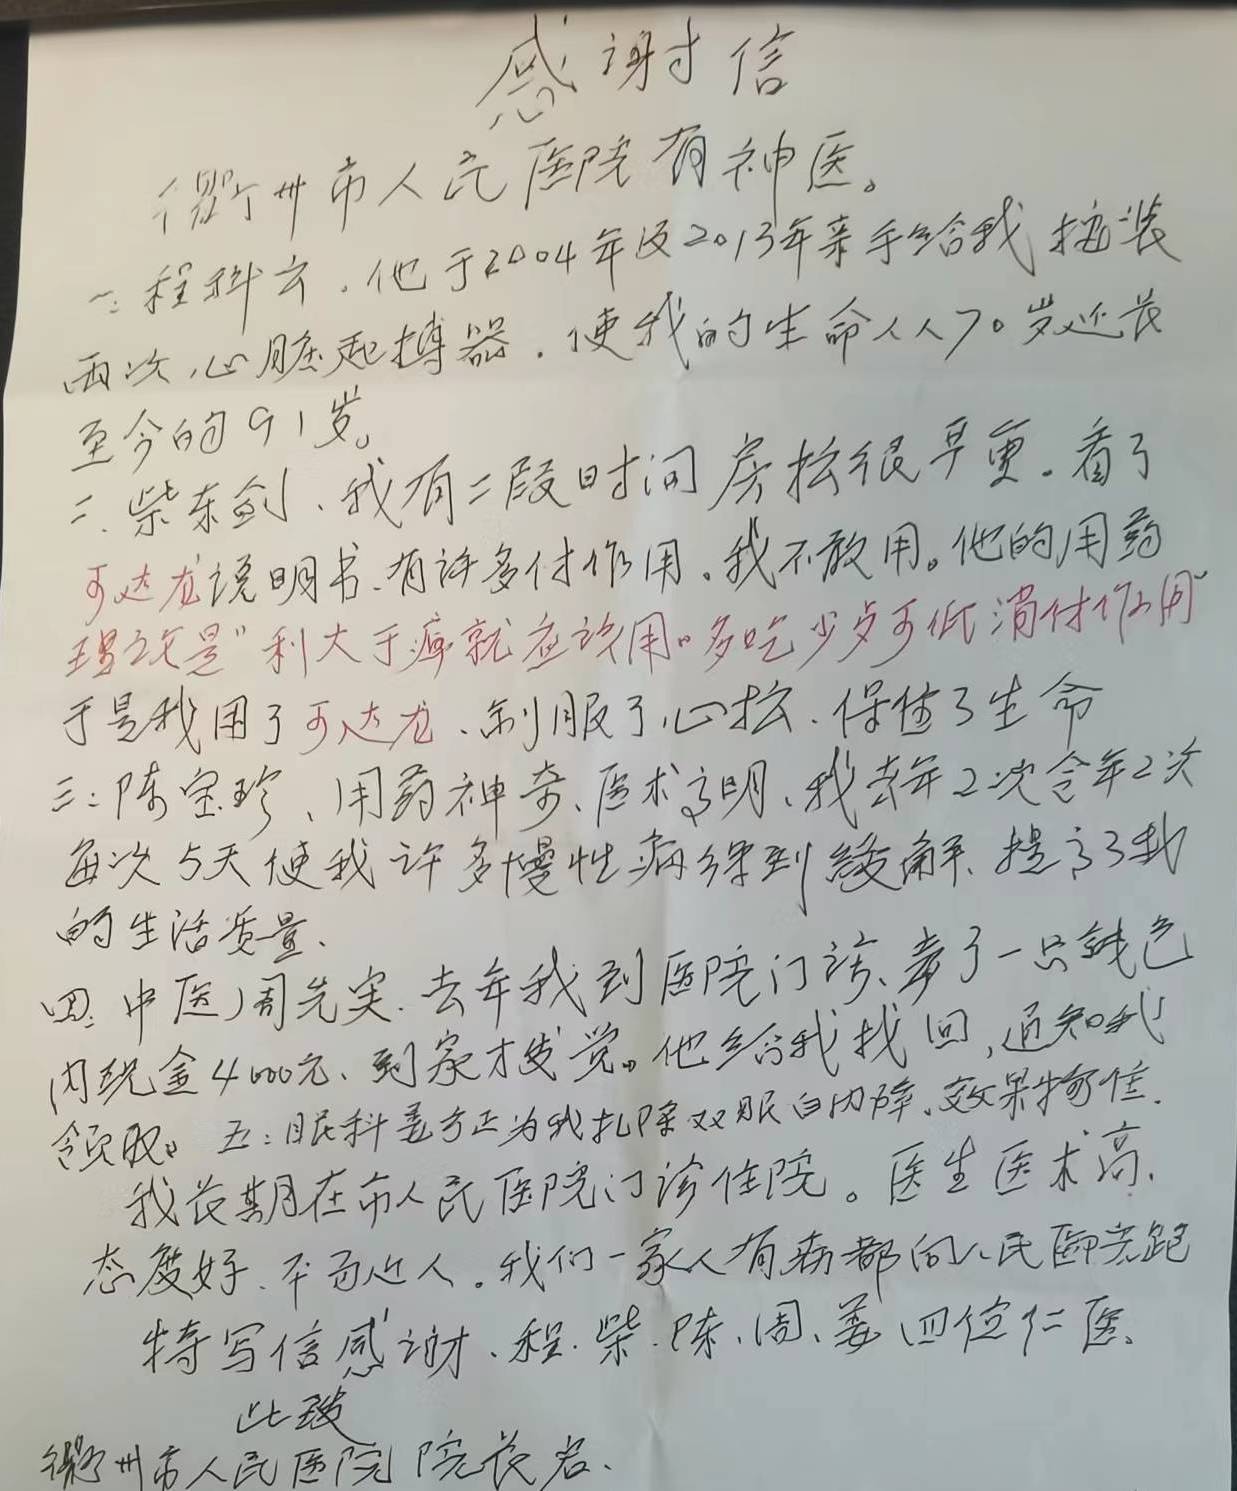 感谢信
衢州市人民医院有神医。
一:程科云.他于2004年及2013年亲手给我按装
两次心脏起搏器.使我的生命从70岁延长
至今的91岁。
二.柴东剑、我有一段时间房抎很严重.看了
可达龙说明书、有许多付作用.我不敢用。他的用药
理论是"利大于癖就应该用。多吃少点可低消付作用"
于是我用了可达龙、制服了心抎、保住了生命
三:陈宝珍、用药神奇、医术高明、我去年2次今年2次
每次5天使我许多慢性病得到缓解、提高了我
的生活质量、
四:中医周先实.去年我到医院门诊、弃了一只钱包
内现金4000元、到家才发觉。他给我找回,通知我
领取。五:眼科姜方正为我扎除双眼白内障、效果特佳.
我长期在市人民医院门诊住院。医生医术高、
态度好、平易近人。我们一家人有病都向人民医院跑
特写信感谢、程.柴.陈、周、姜四位仁医、
此致
衢州市人民医院院长名、